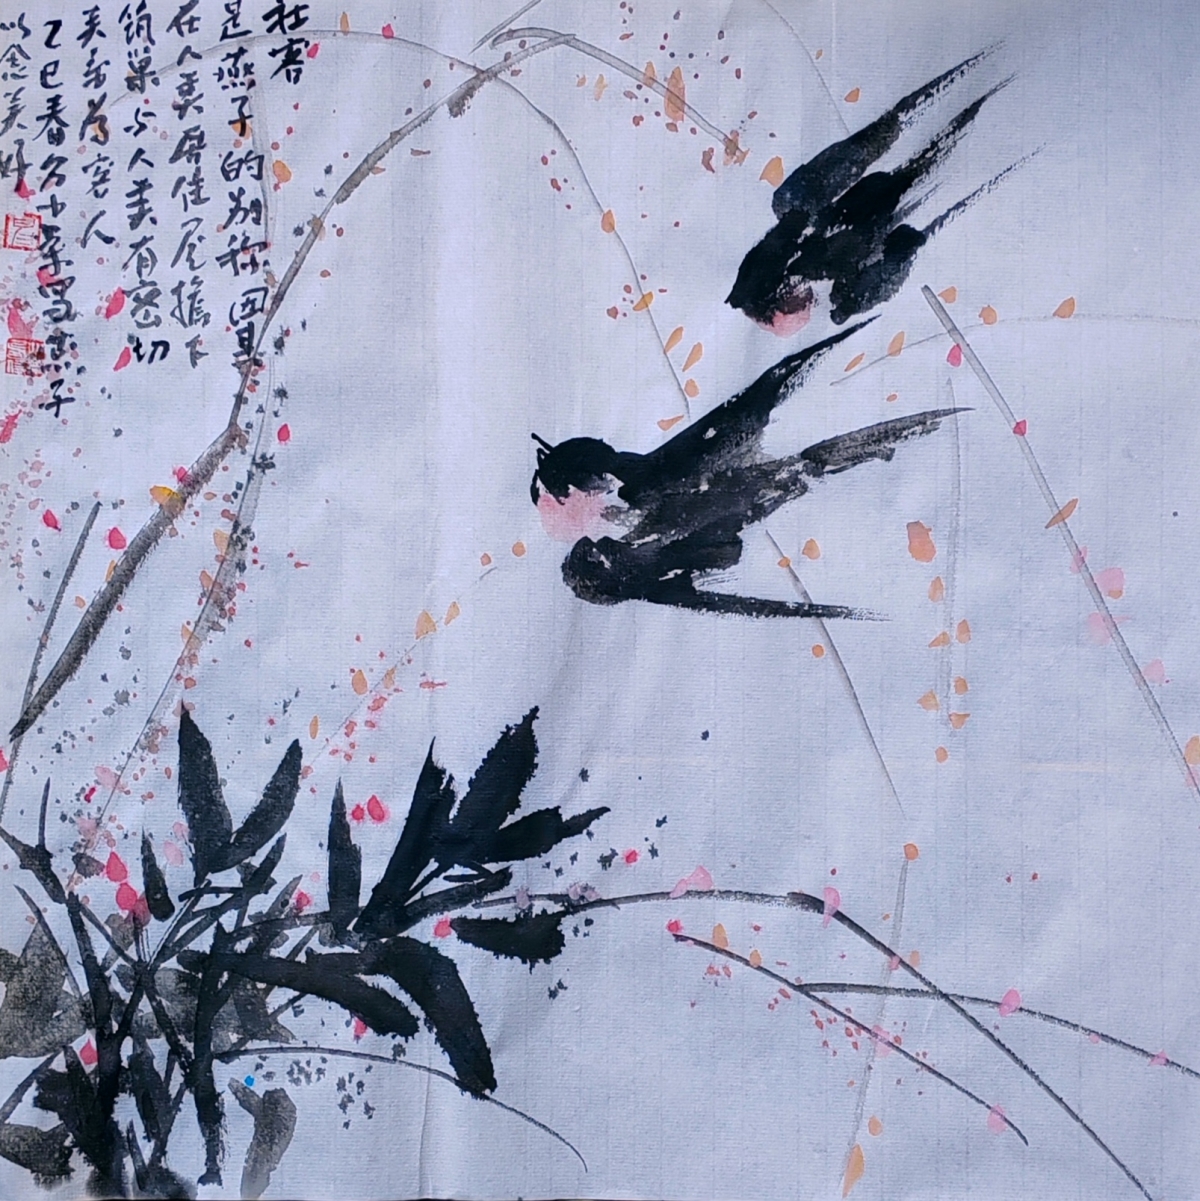 社客
是燕子的别称因其
在人类居住屋檐下
筑巢与人类有密切
关系为客人
乙巳春写燕子
以念美好